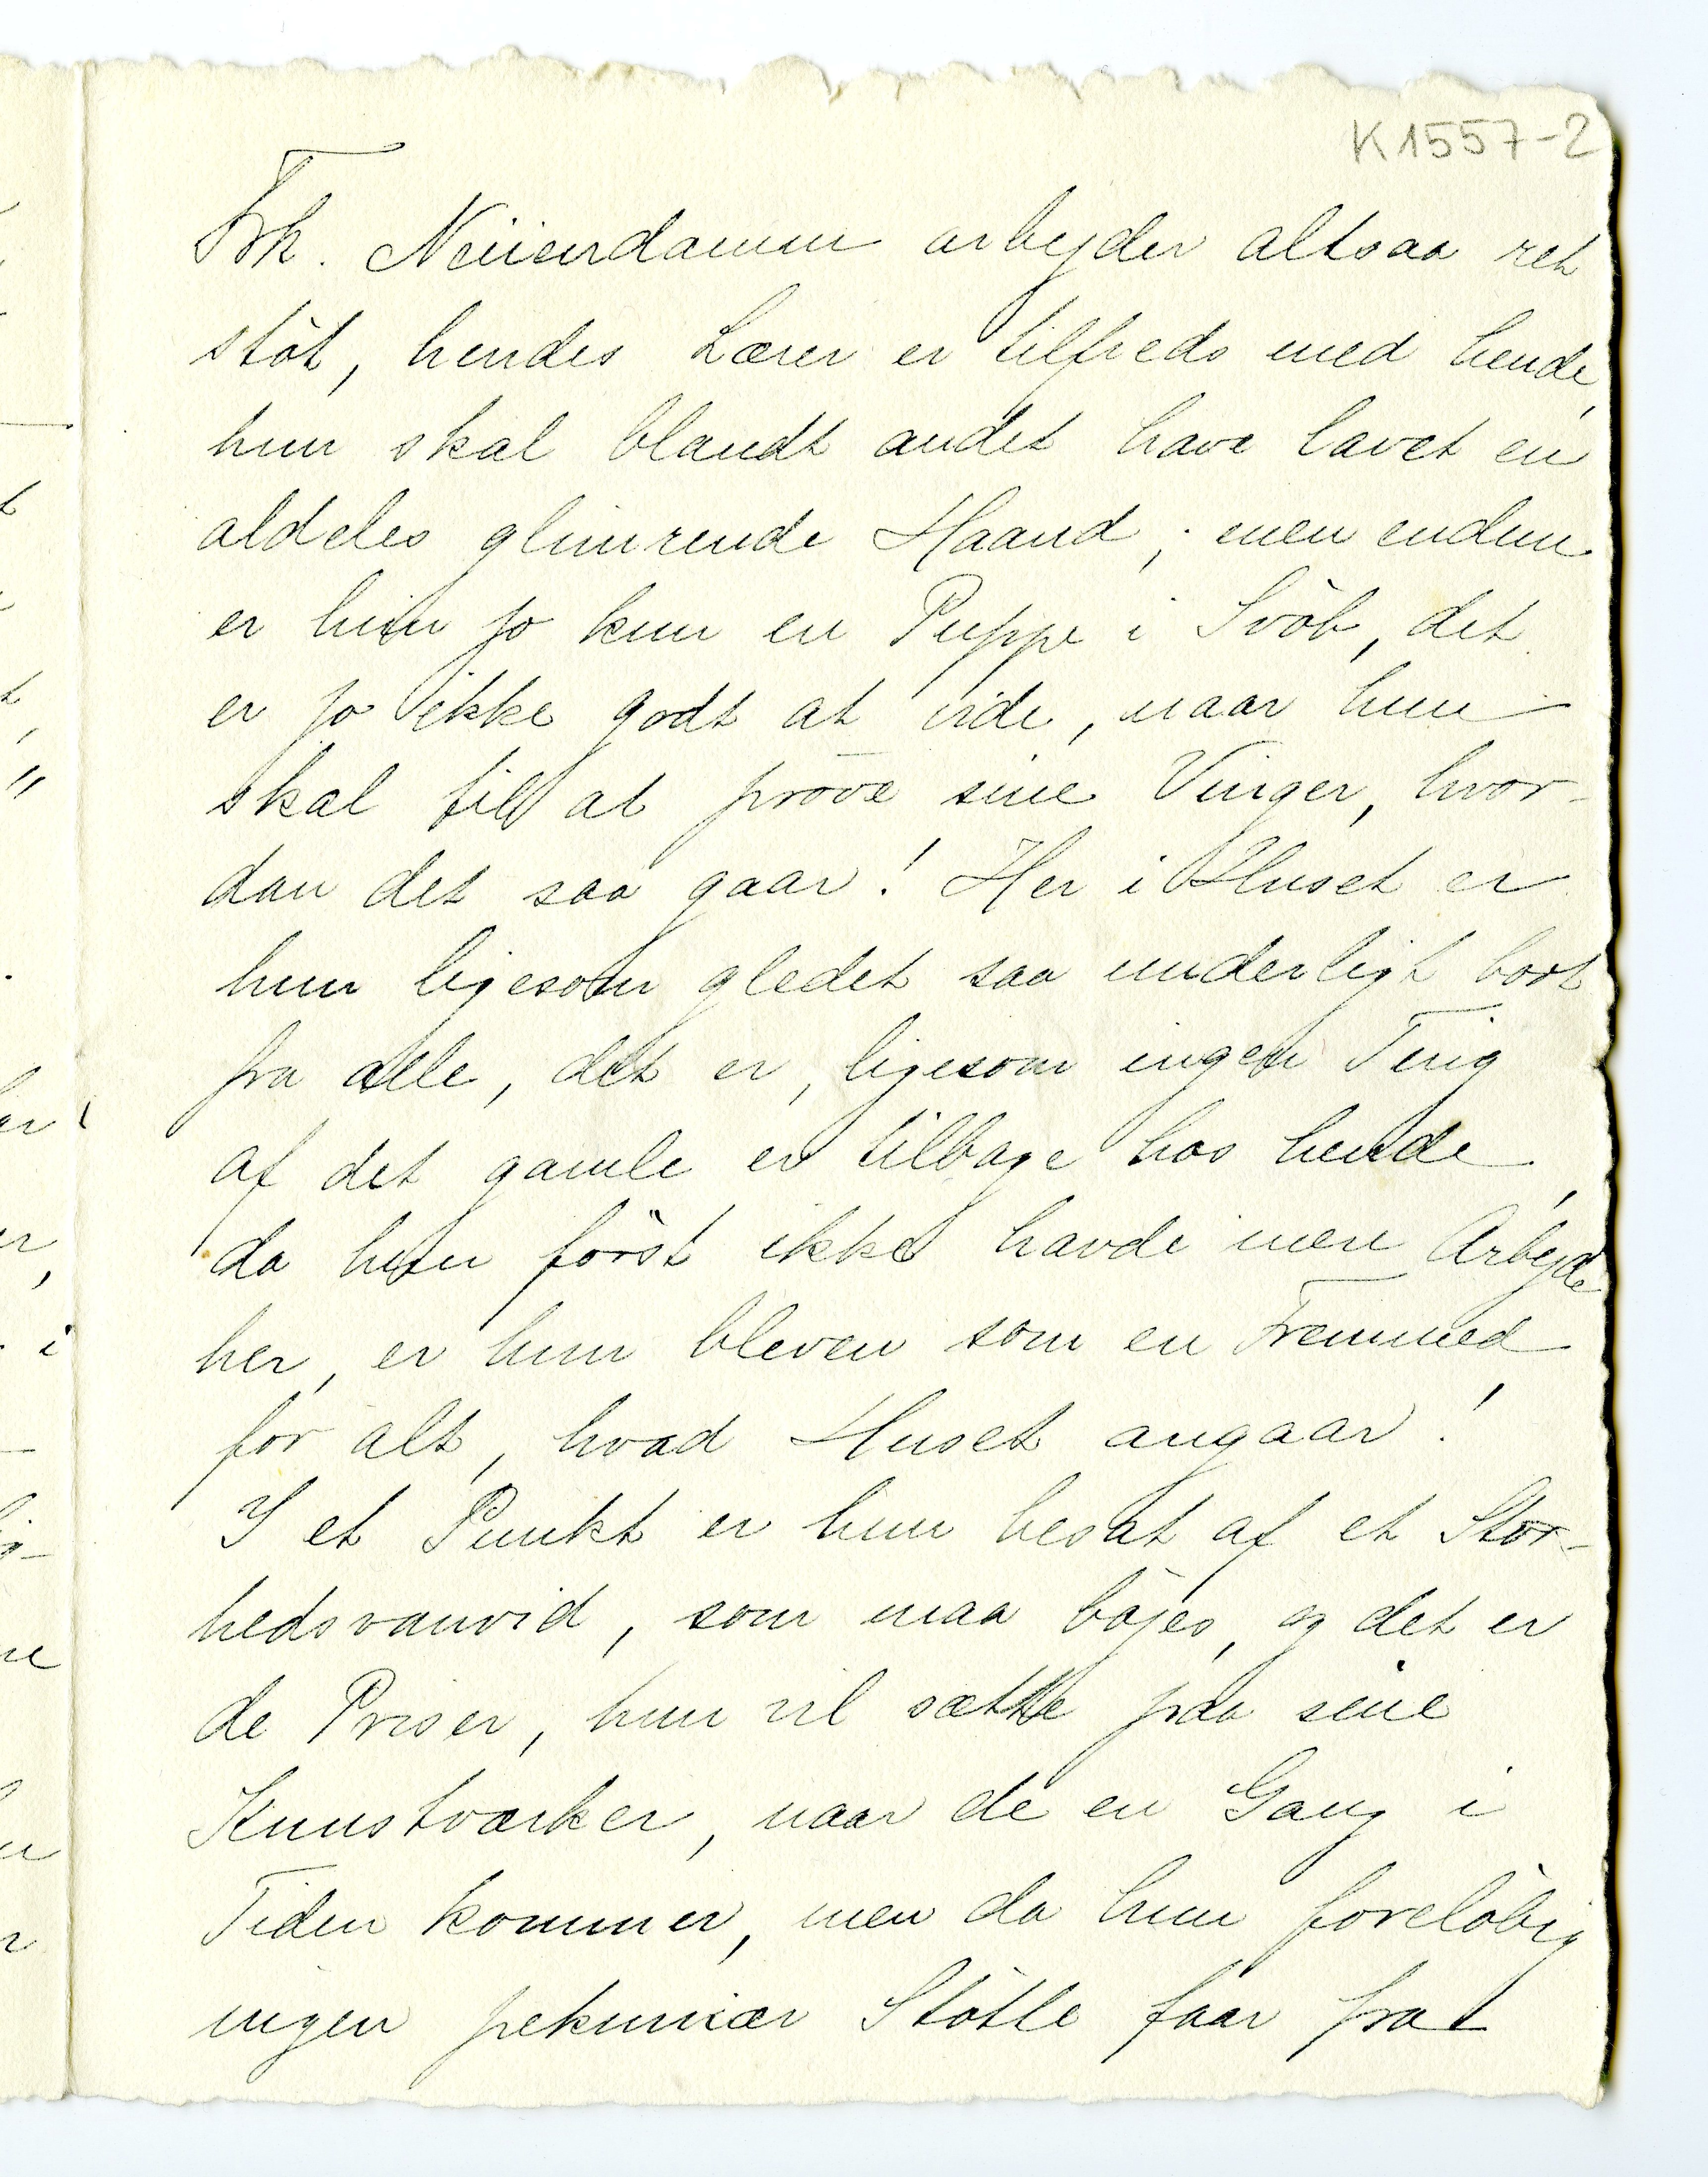 K 1557-2
Frk. Neiiendamm arbejder altsaa ret
støt, hendes Lærer er tilfreds med hende,
hun skal blandt andet have lavet en
aldeles glimrende Haand; men endnu
er hun jo kun en Puppe i Svøb, det
er jo ikke godt at vide, naar hun
skal til at prøve sine Vinger, hvor-
dan det saa gaar! Her i Huset er
hun ligesom gledet saa underligt bort
fra alle, det er, ligesom ingen Ting
af det gamle er tilbage hos hende,
da hun først ikke havde mere Arbejde
her, er hun bleven som en Fremmed
for alt, hvad Huset angaar!
I et Punkt er hun besat af et Stor-
hedsvanvid, som maa bøjes, og det er
de Priser, hun vil sætte paa sine
Kunstværker, naar de en Gang i
Tiden kommer, men da hun foreløbig
ingen pekuniær Støtte faar fra